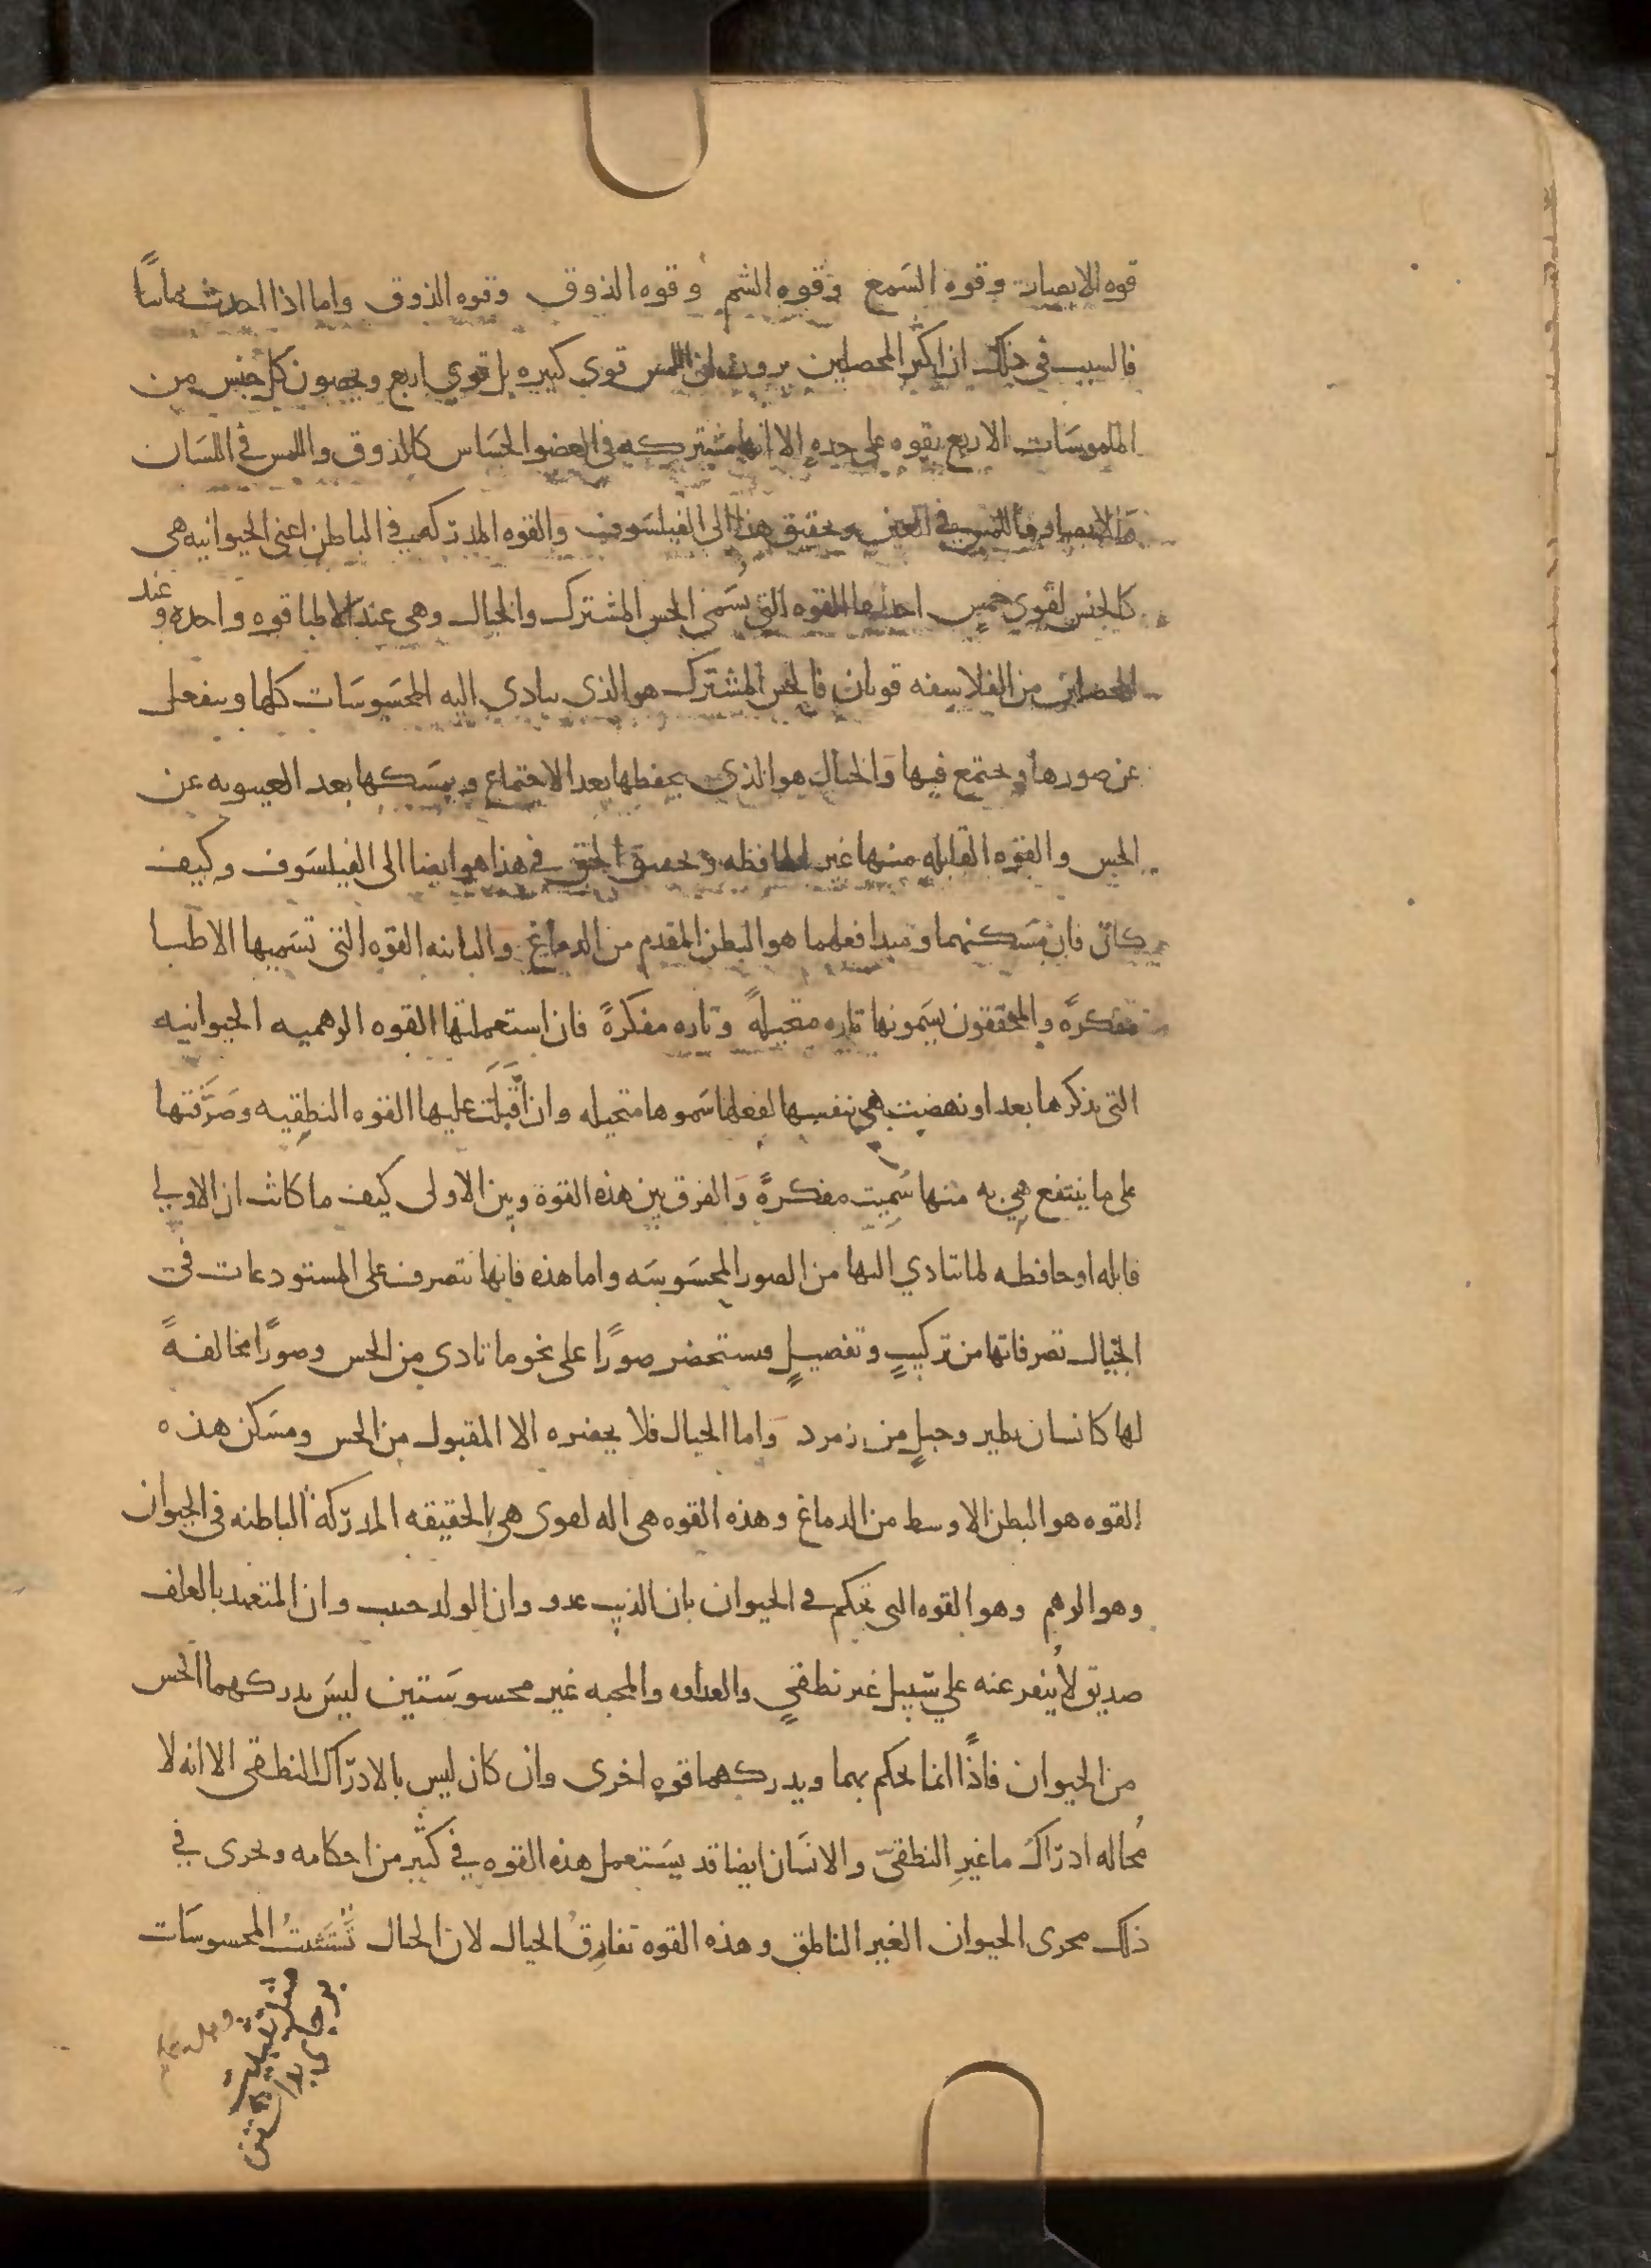 قوه الابصار وقوه السمع وقوه الشم وقوه الذوق وقوه الذوق واما اذا احدث ثمانيًا
فالسبب في ذلك ان اكثر المحصلين يرون ان اللمس قوي كثيره بل قوي اربع ويخصون كل جنس من
الملموسَات الاربع بقوه على حدهٍ الا انها مشتركه في العضو الحسَاس كالذوق واللمس في اللسَان
والابصار واللمس في العين وتحقيق هذا الى الفيلسَوف والقوه المدركه في الباطن اعني الحيوانيه هي
كالجنس لقوي خمس احداها القوه التي تسَمى الحس المشترك والخيال وهي عند الاطبا قوه واحده وعند
المحصلين من الفلاسفه قوتان فالحس المشترك هو الذي يتادى اليه المحسَوسَات كلها وينفعل
عن صورها ويجتمع فيها وَالخيال هو الذي يحفظها بعد الاجتماع ويمسَكها بعد الغيبوبه عن
الحس والقوه القابله منها غير الحافظه وتحقيق الحق في هذا هو ايضا الى الفيلسَوف وكيف
كان فان مسَكنهما ومبدا فعلهما هو البطن المقدم من الدماغ والثانيه القوه التي تسَميها الاطبا
مفكرةً والمحققون يسَمونها تاره متخيلةً وتاره مفكرةً فان استعملتها القوه الوهميه الحيوانيه
التي نذكرها بعد او نهضت هي بنفسها لفعلها سَموها متخيله وان اَقبَلَت عليها القوه النطقيه وصَرَّفتها
على ما ينتفع هي به منها سُمِيت مفكرةً وَالفرق بين هذه القوة وبين الاولى كيف ما كانت ان الاولي
قابله او حافظه لما يتادي اليها من الصور المحسَوسَه واما هذه فانها تتصرف على المستودعات في
الخيال تصرفاتها من تركيبٍ وتفصيلٍ فتستحضر صورًا على نحو ما تادى من الحس وصورًا مخالفةً
لها كانسان يطير وجبلٍ من زمرد وَاما الخيال فلا يحضره الا المقبول من الحس ومسَكن هذه
القوه هو البطن الاوسط من الدماغ وهذه القوه هي اله لقوى هي بالحقيقه المدركة الباطنه في الحيوان
وهو الوهم وهو القوه التي تحكم في الحيوان بان الذيب عدو وان الولد حبيب وان المتعهد بالعلف
صديق لا يُنفر عنه علي سَبيل غير نطقيٍ والعداوه والمحبه غير محسوسَتين ليسَ يدركهما الحس
من الحيوان فاذًا انما يحكم بهما ويدركهما قوه اخرى وان كان ليس بالادراك النطقي الا انه لا
مُحاله ادراك ما غير النطقيّ والانسَان ايضا قد يسَتعمل هذه القوه في كثير من احكامه ويجرى في
ذلك مجرى الحيوان الغير الناطق وهذه القوه تفارِقُ الخيال لان الخيال تَستَثبتُ المحسوسَات